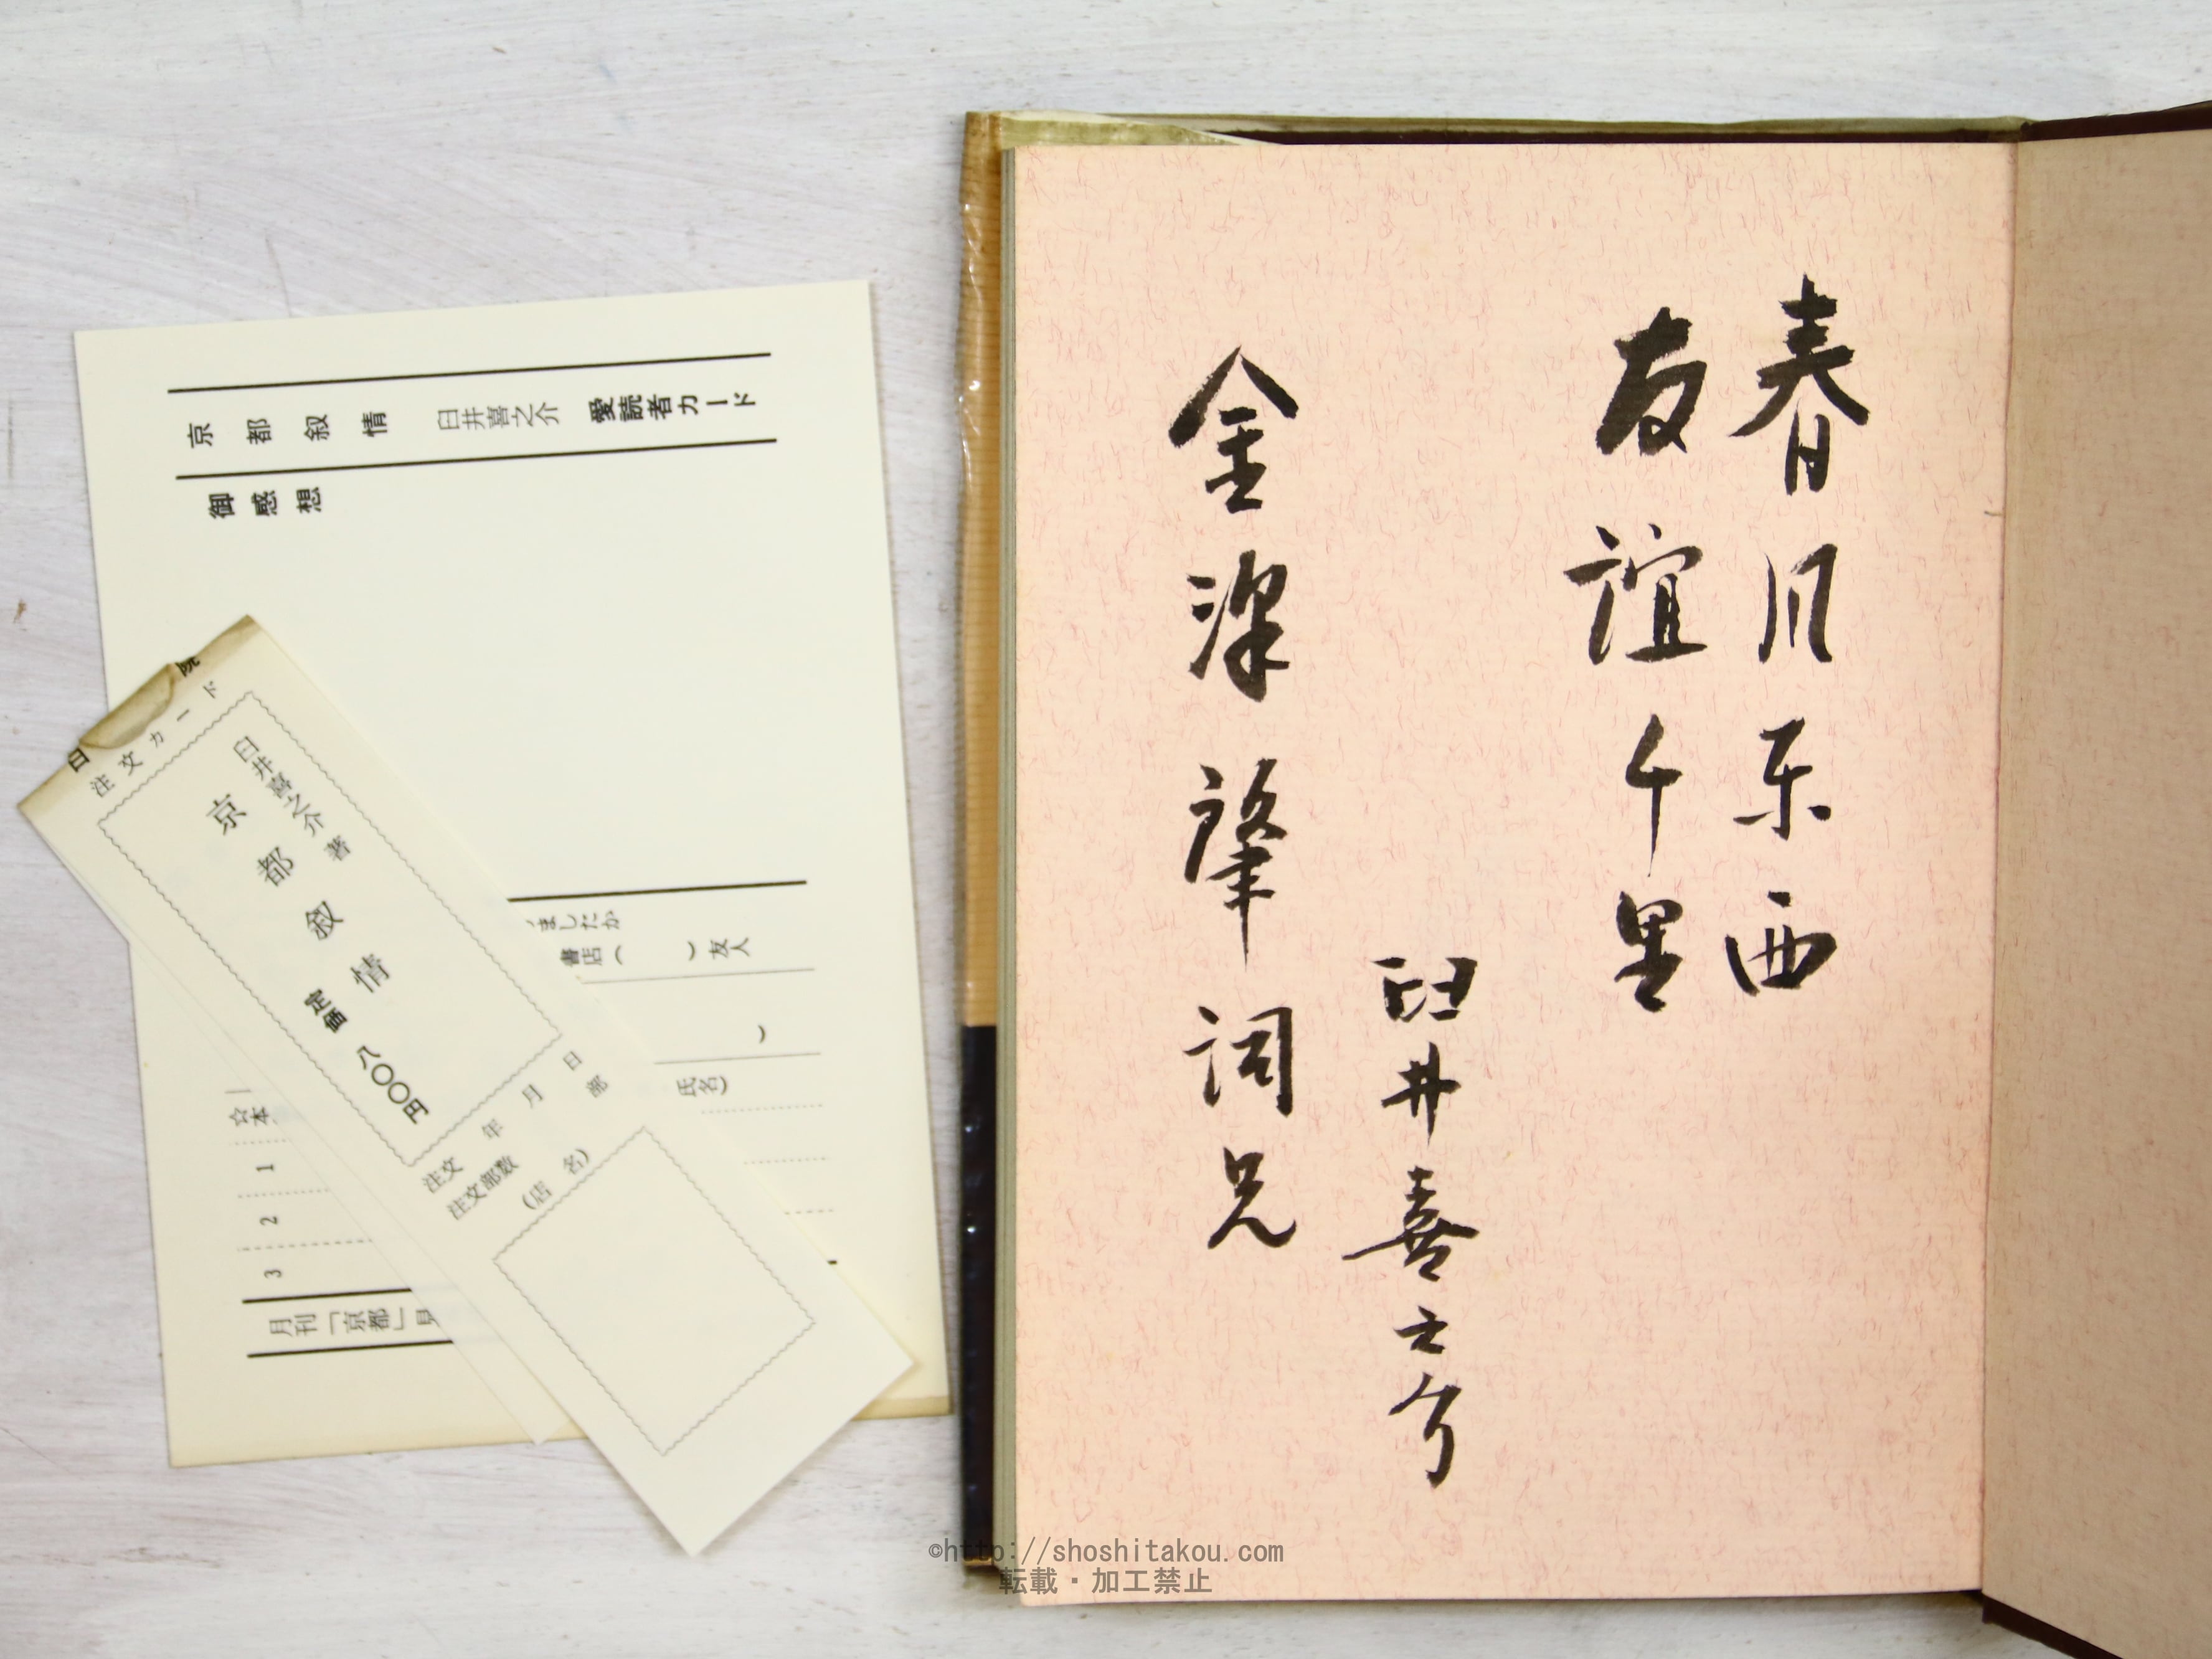 春風東西
友誼千里
臼井喜之介
金沢肇詞兄
京都叙情 臼井喜之介 愛読者カード
御感想
ましたか
書店( )友人
)
氏名)
☆本
1
2
3
月刊「京都」見
注文カード
臼井喜之介著
京都叙情
定価 八〇〇円
注文 年 月 日
注文部数 部
(店 名)
©http://shoshitakou.com
転載・加工禁止